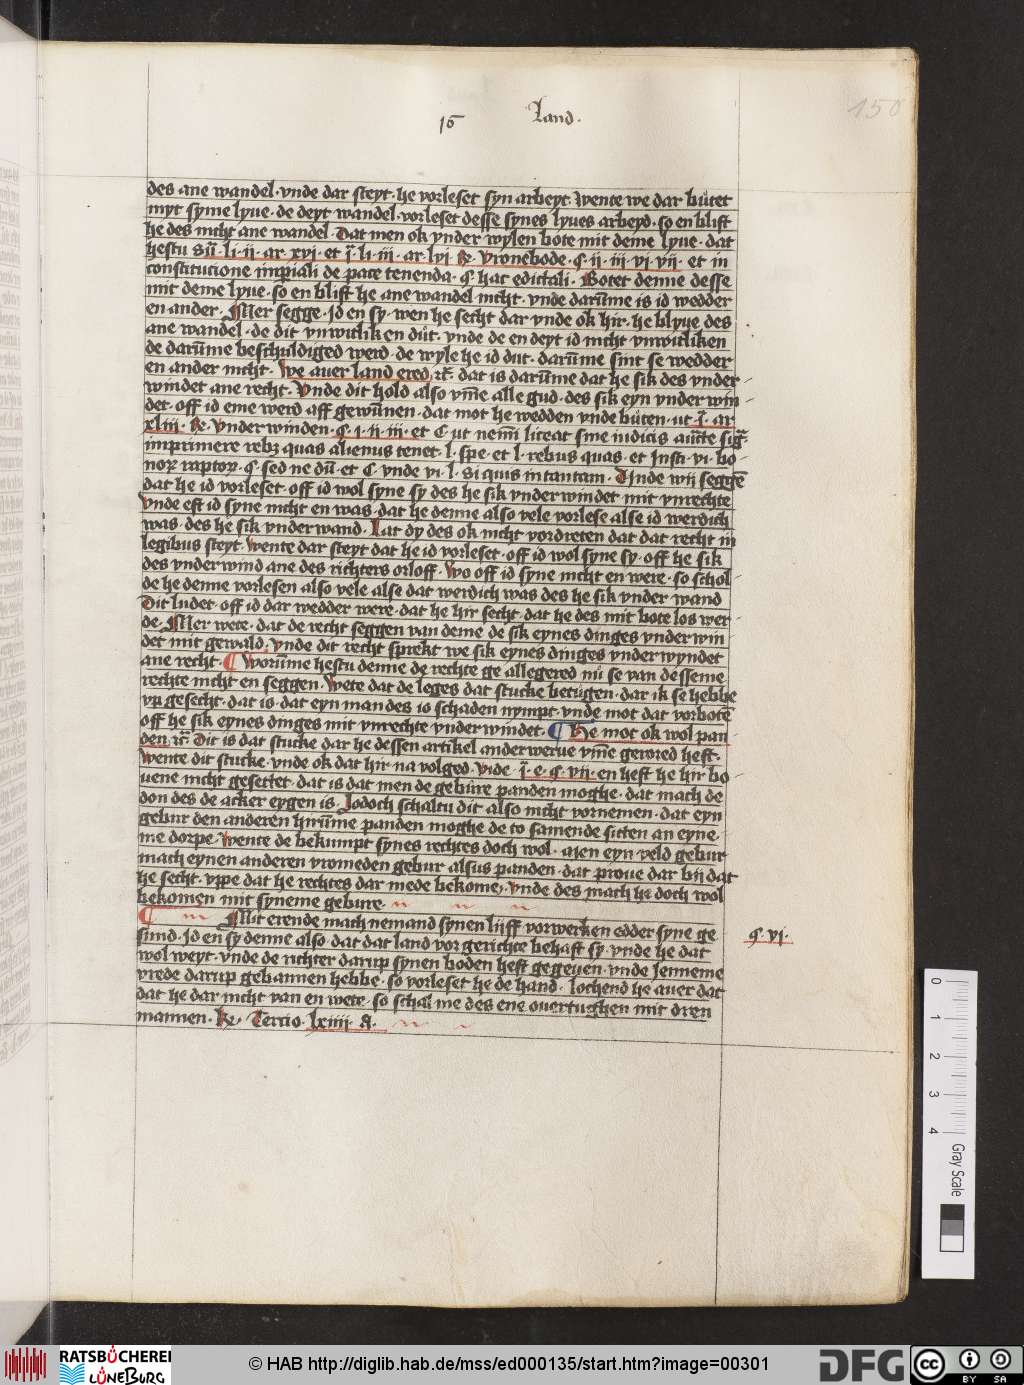 150
16 Land.
des ane wandel · vnde dar steyt · he vorleset syn arbeyt · wente we dar buͦtet
myt syme lyue · de deyt wandel · vorleset desse synes lyues arbeyd · so en blift
he des nicht ane wandel · Dat men ok vnder wylen bote mit deme lyue · dat
hestu su᷃ · li · ii · ar xvi · et j᷃ · li · iii · ar · lvi R᷃ · vronebode · ꝯ · ii · iii · vi · vii · et in
constitucione inp̲iali de pace tenenda · ꝯ hac edictali · Botet denne desse
mit deme lyue · so en blift he ane wandel nicht · vnde daru᷃me is id wedder
en ander · Mer segge · Jd en sy · wen he secht dar vnde ok hir · he blyue des
ane wandel · de dit vnwitlik en duͦt · vnde de en deyt id nicht vnwitliken
de daru᷃me beschuldiged werd · de wyle he id dut · daru᷃me sint se wedder
en ander nicht · We auer land ered · rc᷃ · dat is daru᷃me dat he sik des vnder
windet ane recht · Vnde dit hold also vm᷃e alle gud · des sik eyn vnder win
det · off id eme werd aff gewu᷃nen · dat mot he wedden vnde buͦten · ut j᷃ · ar
xliii · R᷃ · vnder winden · ꝯ · i · ii · iii · et C ut nem᷃i liceat sine iudicis auc᷃te sig᷃
imprimere rebꝫ quas alienus tenet · l · spe · et l · rebus quas · et Insti · vi · bo
norꝝ raptorꝝ · ꝯ · sed ne du᷃ · et C · vnde vi · l · si quis in tantam · Vnde wij segge᷃
dat he id vorleset · off id wol syne sy des he sik vnder windet mit vnrechte
Vnde est id syne nicht en was · dat he denne also vele vorlese alse id werdich
was · des he sik vnder wand · Lat dy des ok nicht vordreten dat dat recht in
legibus steyt · wente dar steyt dat he id vorleset · off id wol syne sy · off he sik
des vnder wind ane des richters orloff · wo off id syne nicht en were · so schol
de he denne vorlesen also vele alse dat werdich was des he sik vnder wand
Dit ludet · off id dar wedder were · dat he hir secht · dat he des mit bote los wer
de · Mer wete · dat de recht seggen van deme de sik eynes dinges vnder win
det mit gewald · vnde dit recht sprekt we sik eynes dinges vnder wyndet
ane recht · ¶ Woru᷃me hestu denne de rechte ge allegered nu se van desseme
rechte nicht en seggen · Wete dat de leges dat stucke betuͦgen · dar ik se hebbe
vp gesecht · dat is · dat eyn man des io schaden nympt · vnde mot dat vorbote᷃
off he sik eynes dinges mit vnrechte vnder windet · ¶ He mot ok wol pan
den · rc᷃ · Dit is dat stucke dar he dessen artikel anderwerue vm᷃e gerored heft ·
Wente dit stucke · vnde ok dat hir na volged · Vide · j᷃ · e · ꝯ · vii · en heft he hir bo
uene nicht gesettet · dat is dat men de gebure panden moghe · dat mach de
don des de acker eygen is · Jodoch schaltu dit also nicht vornemen · dat eyn
gebur den anderen hiru᷃me panden moghe de to samende sitten an eyne
me dorpe · Wente de bekumpt synes rechtes doch wol · Men eyn veld gebur
mach eynen anderen vromeden gebur alsus panden · dat proue dar bij dat
he secht · vppe dat he rechtes dar mede bekome · vnde des mach he doch wol
bekomen mit syneme gebure ·
¶ Mit erende mach nemand synen lijff vorwerken edder syne ge
sund · Jd en sy denne also · dat dat land vor gerichte behaft sy · vnde he dat
wol weyt · vnde de richter darup synen boden heft gegeuen · vnde Jenneme
vrede darup gebannen hebbe · so vorleset he de hand · Lochend he auer dat
dat he dar nicht van en wete · so schal me des ene ouertughen mit dren
mannen · R᷃ · Tercio · lxiiii · a ·
ꝯ · vi ·
0
1
2
3
4
Gray Scale
RATSBÜCHEREI
LÜNEBURG
© HAB http://diglib.hab.de/mss/ed000135/start.htm?image=00301
DFG
cc
BY SA